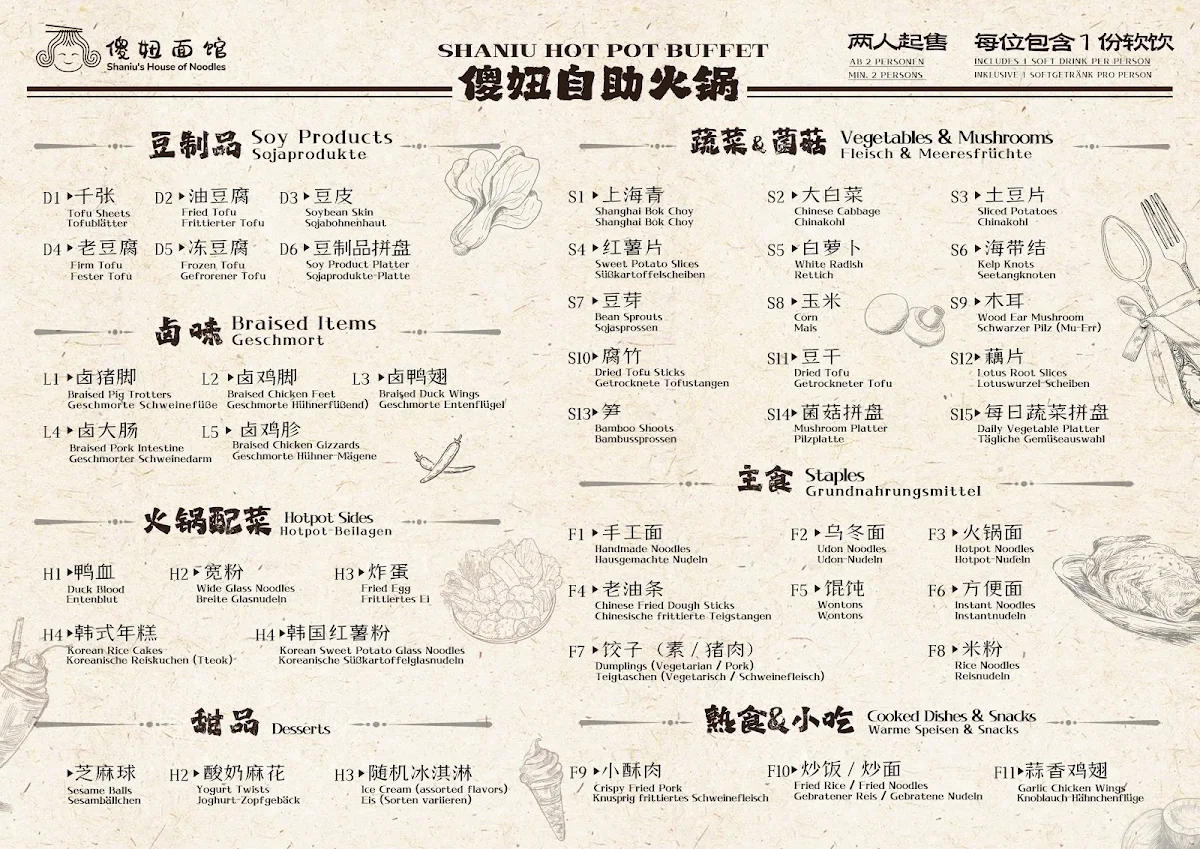 傻妞面馆
Shaniu's House of Noodles
SHANIU HOT POT BUFFET
傻妞自助火锅
两人起售
AB 2 PERSONEN
MIN. 2 PERSONS
每位包含1份软饮
INCLUDES 1 SOFT DRINK PER PERSON
INKLUSIVE 1 SOFTGETRÄNK PRO PERSON
豆制品 Soy Products
Sojaprodukte
D1 千张
Tofu Sheets
Tofublätter
D2 油豆腐
Fried Tofu
Frittierter Tofu
D3 豆皮
Soybean Skin
Sojabohnenhaut
D4 老豆腐
Firm Tofu
Fester Tofu
D5 冻豆腐
Frozen Tofu
Gefrorener Tofu
D6 豆制品拼盘
Soy Product Platter
Sojaprodukte-Platte
卤味 Braised Items
Geschmort
L1 卤猪脚
Braised Pig Trotters
Geschmorte Schweinefüße
L2 卤鸡脚
Braised Chicken Feet
Geschmorte Hühnerfüßend)
L3 卤鸭翅
Braised Duck Wings
Geschmorte Entenflügel
L4 卤大肠
Braised Pork Intestine
Geschmorter Schweinedarm
L5 卤鸡胗
Braised Chicken Gizzards
Geschmorte Hühner-Mägene
火锅配菜 Hotpot Sides
Hotpot-Beilagen
H1 鸭血
Duck Blood
Entenblut
H2 宽粉
Wide Glass Noodles
Breite Glasnudeln
H3 炸蛋
Fried Egg
Frittiertes Ei
H4 韩式年糕
Korean Rice Cakes
Koreanische Reiskuchen (Tteok)
H4 韩国红薯粉
Korean Sweet Potato Glass Noodles
Koreanische Süßkartoffelglasnudeln
甜品 Desserts
芝麻球
Sesame Balls
Sesambällchen
H2 酸奶麻花
Yogurt Twists
Joghurt-Zopfgebäck
H3 随机冰淇淋
Ice Cream (assorted flavors)
Eis (Sorten variieren)
蔬菜&菌菇 Vegetables & Mushrooms
Fleisch & Meeresfrüchte
S1 上海青
Shanghai Bok Choy
Shanghai Bok Choy
S2 大白菜
Chinese Cabbage
Chinakohl
S3 土豆片
Sliced Potatoes
Chinakohl
S4 红薯片
Sweet Potato Slices
Süßkartoffelscheiben
S5 白萝卜
White Radish
Rettich
S6 海带结
Kelp Knots
Seetangknoten
S7 豆芽
Bean Sprouts
Sojasprossen
S8 玉米
Corn
Mais
S9 木耳
Wood Ear Mushroom
Schwarzer Pilz (Mu-Err)
S10 腐竹
Dried Tofu Sticks
Getrocknete Tofustangen
S11 豆干
Dried Tofu
Getrockneter Tofu
S12 藕片
Lotus Root Slices
Lotuswurzel-Scheiben
S13 笋
Bamboo Shoots
Bambussprossen
S14 菌菇拼盘
Mushroom Platter
Pilzplatte
S15 每日蔬菜拼盘
Daily Vegetable Platter
Tägliche Gemüseauswahl
主食 Staples
Grundnahrungsmittel
F1 手工面
Handmade Noodles
Hausgemachte Nudeln
F2 乌冬面
Udon Noodles
Udon-Nudeln
F3 火锅面
Hotpot Noodles
Hotpot-Nudeln
F4 老油条
Chinese Fried Dough Sticks
Chinesische frittierte Teigstangen
F5 馄饨
Wontons
Wontons
F6 方便面
Instant Noodles
Instantnudeln
F7 饺子（素 / 猪肉）
Dumplings (Vegetarian / Pork)
Teigtaschen (Vegetarisch / Schweinefleisch)
F8 米粉
Rice Noodles
Reisnudeln
熟食&小吃 Cooked Dishes & Snacks
Warme Speisen & Snacks
F9 小酥肉
Crispy Fried Pork
Knusprig frittiertes Schweinefleisch
F10 炒饭 / 炒面
Fried Rice / Fried Noodles
Gebratener Reis / Gebratene Nudeln
F11 蒜香鸡翅
Garlic Chicken Wings
Knoblauch-Hähnchenflüge